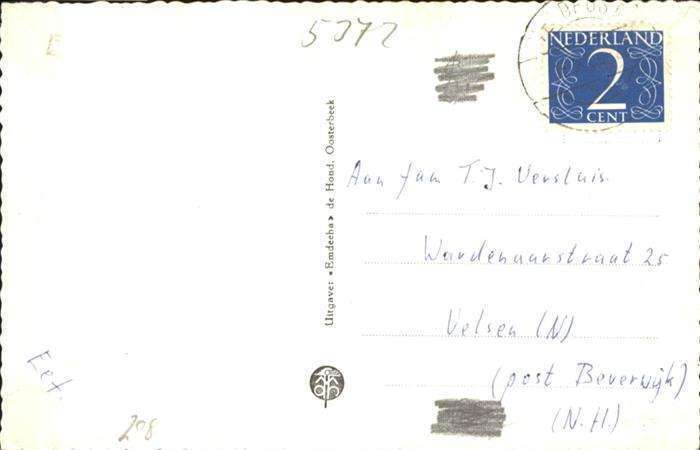 5072
NEDERLAND
2
CENT
Uitgaver «Emdeeha» de Hond, Oosterbeek
Aan fam T.J. Versluis.
Wardenaarstraat 25
Velsen (N)
(post Beverwijk)
(N.H.)
208